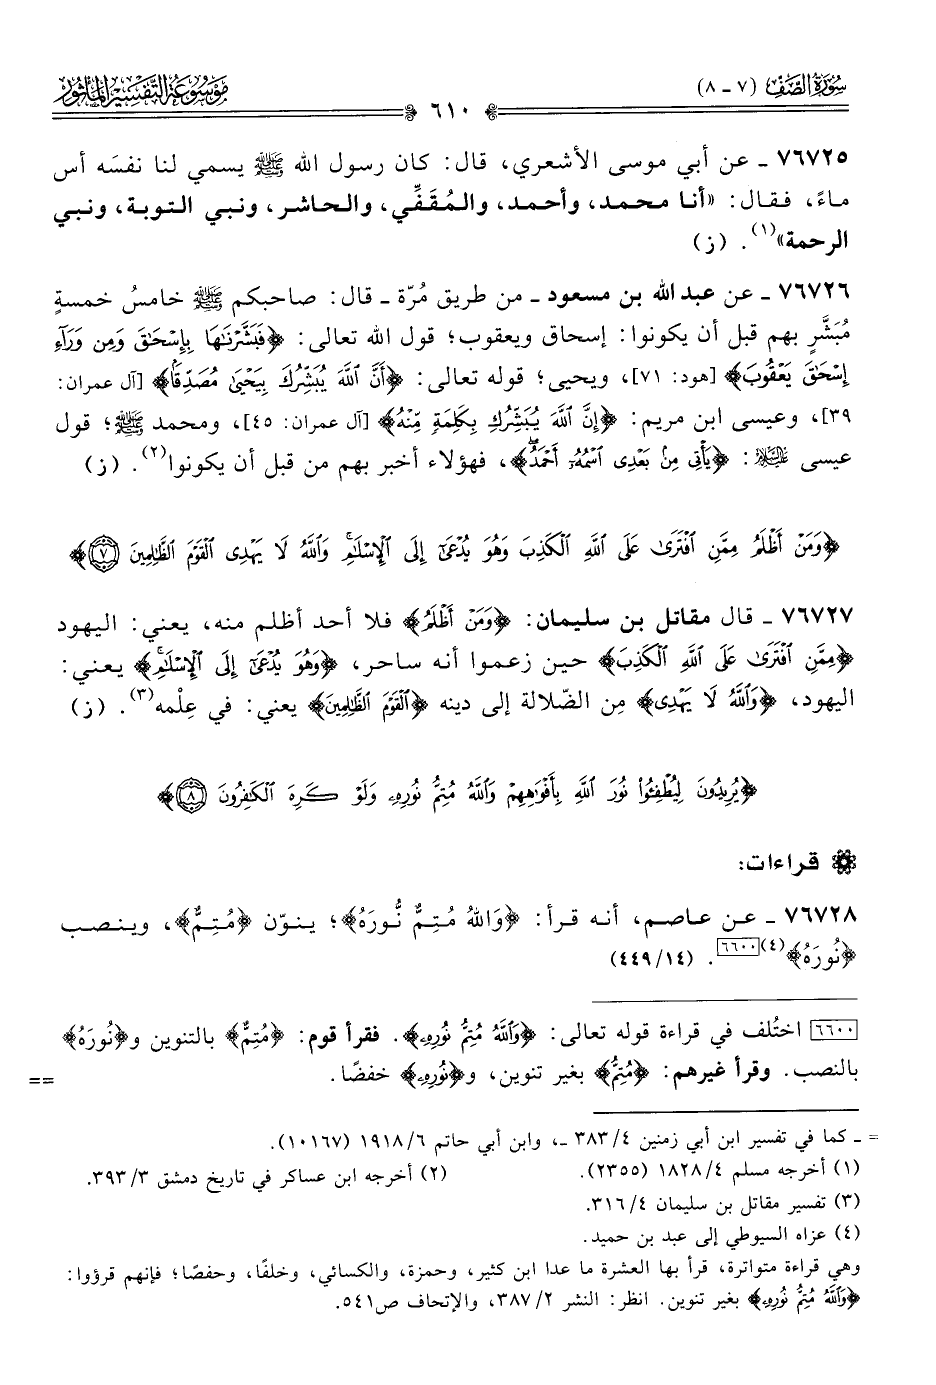 سُورَةُ الصَّفِّ (٧ - ٨)
٦١٠
مَوْسُوعَةُ التَّفْسِيرِ المَأْثُورِ
٧٦٧٢٥ ـ عن أبي موسى الأشعري، قال: كان رسول الله ﷺ يسمي لنا نفسَه أس
ماءً، فقال: «أنا محمد، وأحمد، والمُقَفِّي، والحاشر، ونبي التوبة، ونبي
الرحمة»(١). (ز)
٧٦٧٢٦ ـ عن عبد الله بن مسعود ـ من طريق مُرّة ـ قال: صاحبكم ﷺ خامسُ خمسةٍ
مُبَشَّرٍ بهم قبل أن يكونوا: إسحاق ويعقوب؛ قول الله تعالى: ﴿فَبَشَّرْنَٰهَا بِإِسْحَٰقَ وَمِن وَرَآءِ
إِسْحَٰقَ يَعْقُوبَ﴾ [هود: ٧١]، ويحيى؛ قوله تعالى: ﴿أَنَّ ٱللَّهَ يُبَشِّرُكَ بِيَحْيَىٰ مُصَدِّقًۢا﴾ [آل عمران:
٣٩]، وعيسى ابن مريم: ﴿إِنَّ ٱللَّهَ يُبَشِّرُكِ بِكَلِمَةٍ مِّنْهُ﴾ [آل عمران: ٤٥]، ومحمد ﷺ؛ قول
عيسى عليه السلام: ﴿يَأْتِى مِنۢ بَعْدِى ٱسْمُهُۥٓ أَحْمَدُ﴾، فهؤلاء أخبر بهم من قبل أن يكونوا(٢). (ز)
﴿وَمَنْ أَظْلَمُ مِمَّنِ ٱفْتَرَىٰ عَلَى ٱللَّهِ ٱلْكَذِبَ وَهُوَ يُدْعَىٰٓ إِلَى ٱلْإِسْلَٰمِ ۚ وَٱللَّهُ لَا يَهْدِى ٱلْقَوْمَ ٱلظَّٰلِمِينَ ٧﴾
٧٦٧٢٧ ـ قال مقاتل بن سليمان: ﴿وَمَنْ أَظْلَمُ﴾ فلا أحد أظلم منه، يعني: اليهود
﴿مِمَّنِ ٱفْتَرَىٰ عَلَى ٱللَّهِ ٱلْكَذِبَ﴾ حين زعموا أنه ساحر، ﴿وَهُوَ يُدْعَىٰٓ إِلَى ٱلْإِسْلَٰمِ ۚ﴾ يعني:
اليهود، ﴿وَٱللَّهُ لَا يَهْدِى﴾ مِن الضّلالة إلى دينه ﴿ٱلْقَوْمَ ٱلظَّٰلِمِينَ﴾ يعني: في عِلْمه(٣). (ز)
﴿يُرِيدُونَ لِيُطْفِـُٔوا۟ نُورَ ٱللَّهِ بِأَفْوَٰهِهِمْ وَٱللَّهُ مُتِمُّ نُورِهِۦ وَلَوْ كَرِهَ ٱلْكَٰفِرُونَ ٨﴾
❁ قراءات:
٧٦٧٢٨ ـ عن عاصم، أنه قرأ: ﴿وَاللهُ مُتِمٌّ نُّورَهُ﴾؛ ينوّن ﴿مُتِمٌّ﴾، وينصب
﴿نُورَهُ﴾(٤)[٦٦٠٠]. (١٤/٤٤٩)
[٦٦٠٠] اختُلف في قراءة قوله تعالى: ﴿وَٱللَّهُ مُتِمُّ نُورِهِۦ﴾. فقرأ قوم: ﴿مُتِمٌّ﴾ بالتنوين و﴿نُورَهُ﴾
بالنصب. وقرأ غيرهم: ﴿مُتِمُّ﴾ بغير تنوين، و﴿نُورِهِۦ﴾ خفضًا. ==
= ـ كما في تفسير ابن أبي زمنين ٤/ ٣٨٣ ـ، وابن أبي حاتم ٦/ ١٩١٨ (١٠١٦٧).
(١) أخرجه مسلم ٤/ ١٨٢٨ (٢٣٥٥). (٢) أخرجه ابن عساكر في تاريخ دمشق ٣/ ٣٩٣.
(٣) تفسير مقاتل بن سليمان ٤/ ٣١٦.
(٤) عزاه السيوطي إلى عبد بن حميد.
وهي قراءة متواترة، قرأ بها العشرة ما عدا ابن كثير، وحمزة، والكسائي، وخلفًا، وحفصًا؛ فإنهم قرؤوا:
﴿وَٱللَّهُ مُتِمُّ نُورِهِۦ﴾ بغير تنوين. انظر: النشر ٢/ ٣٨٧، والإتحاف ص٥٤١.